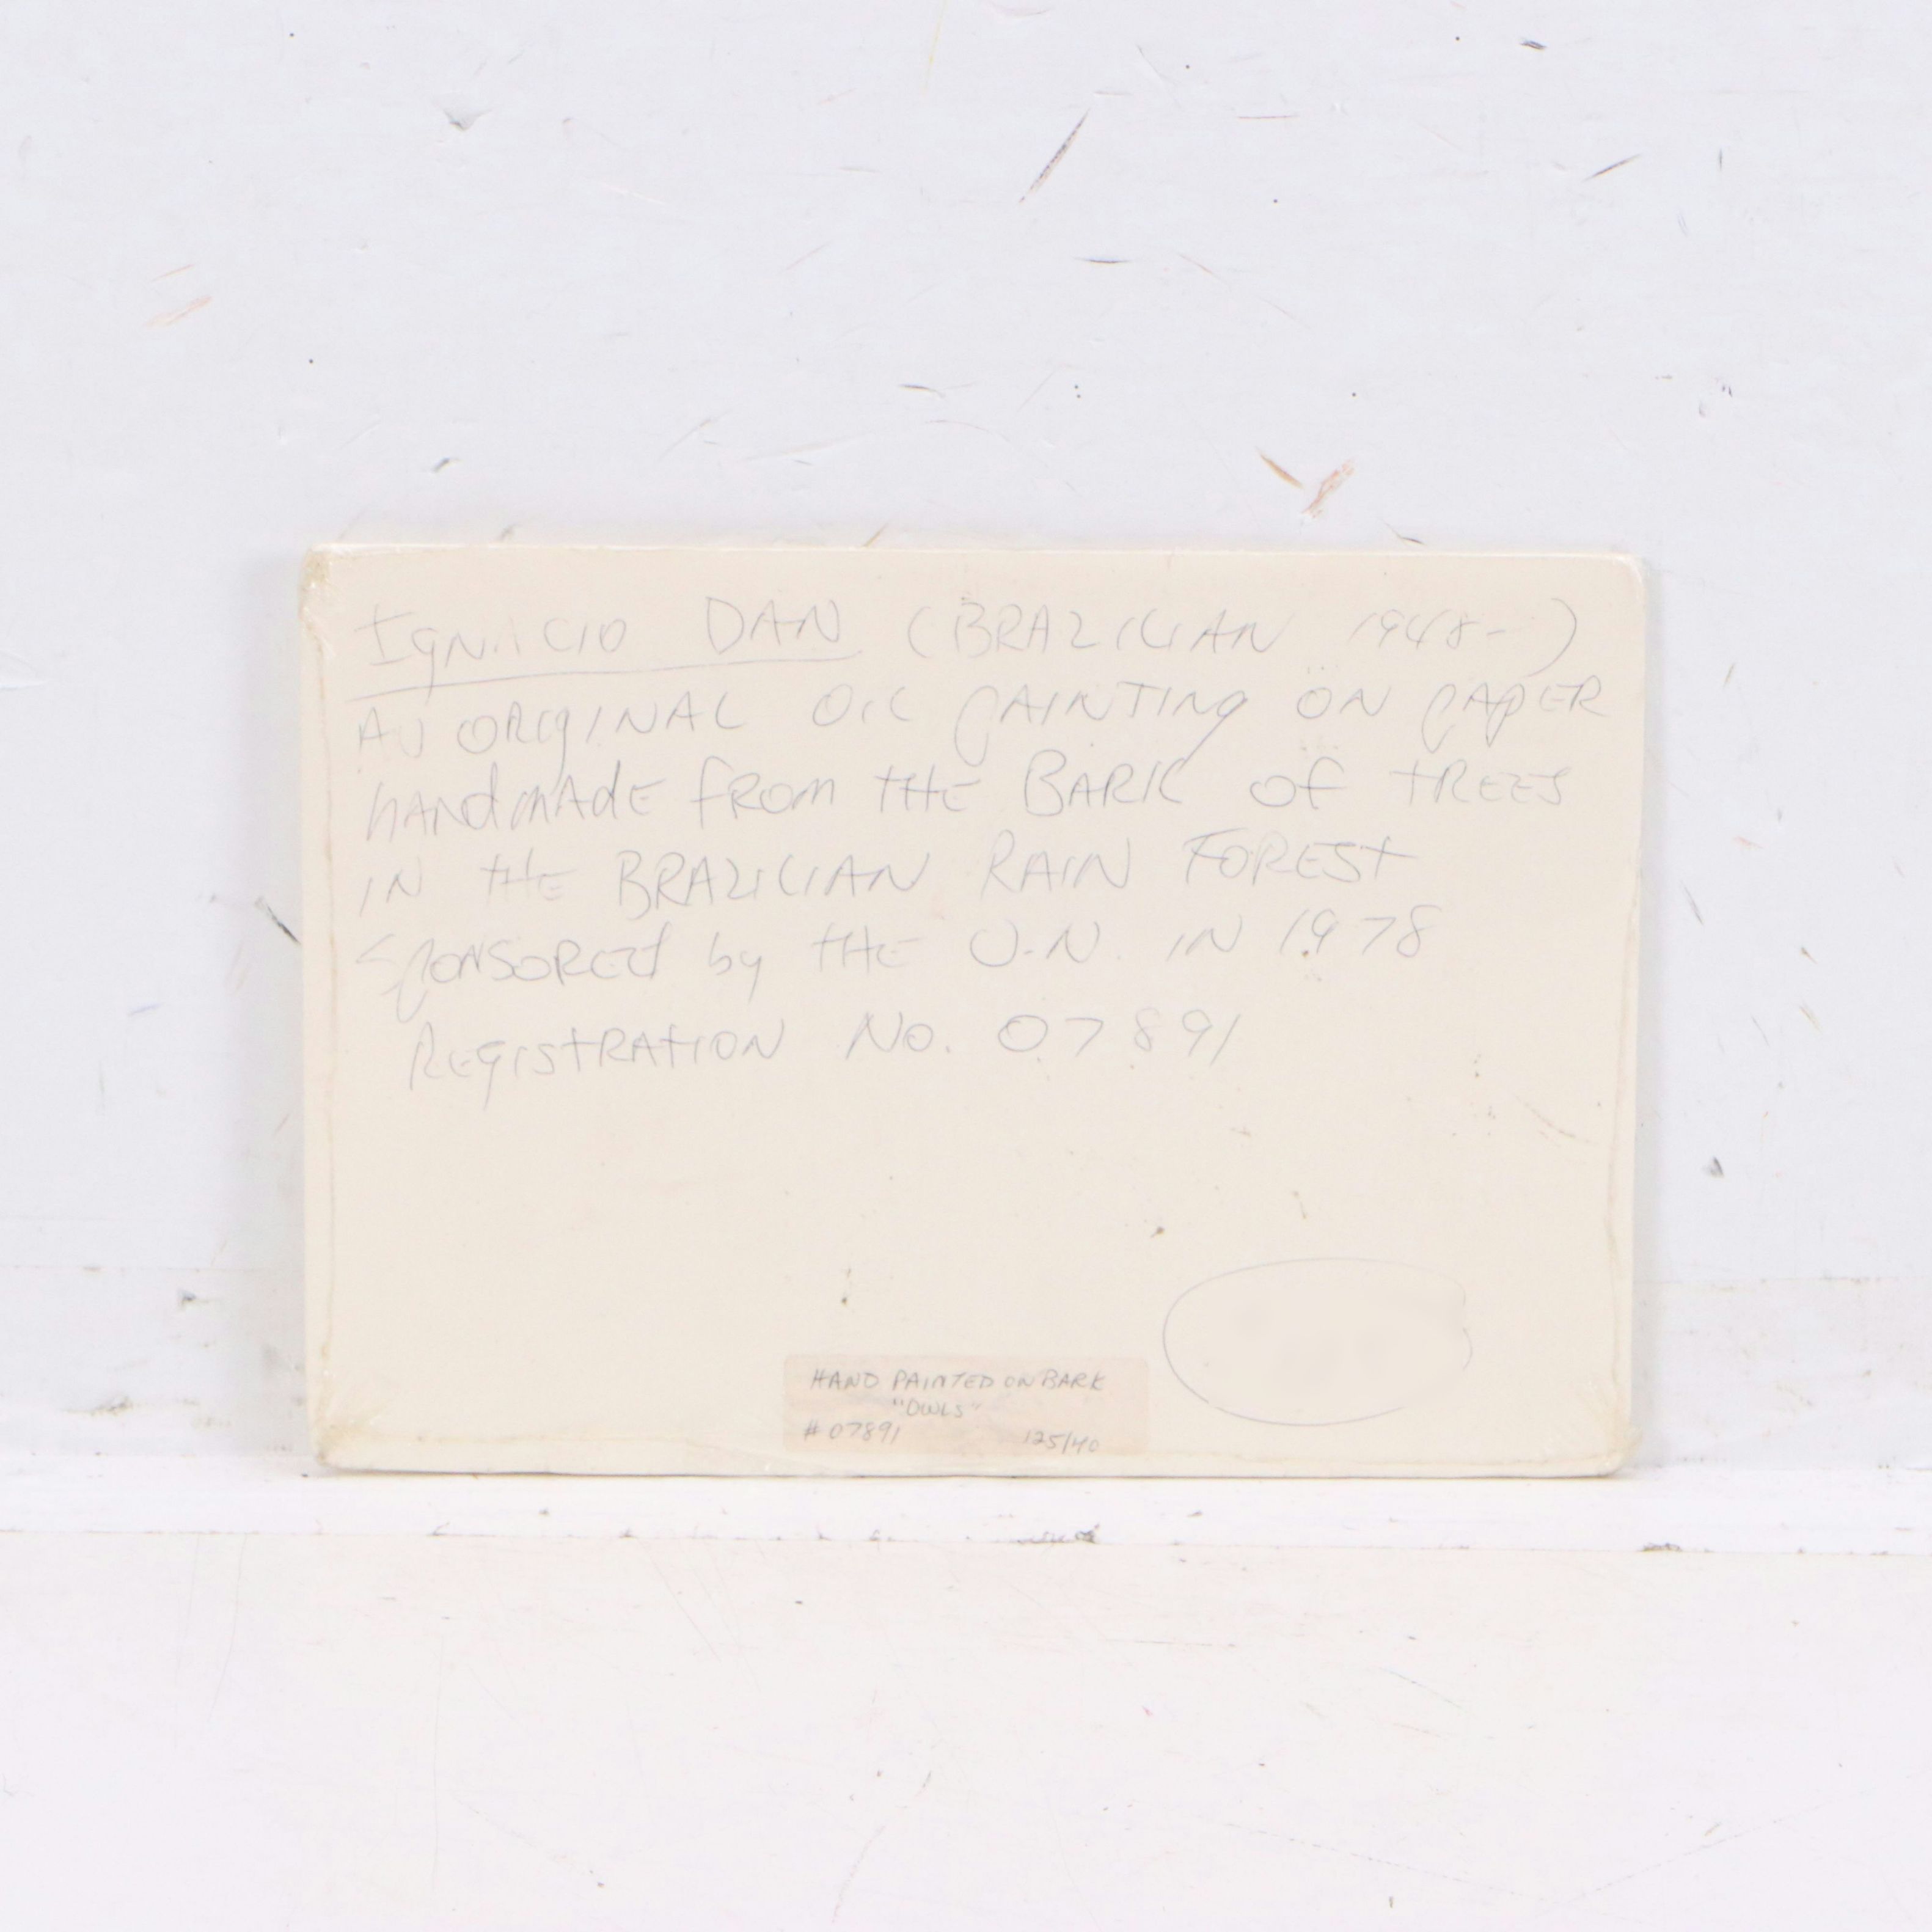 IgNACIO DAN (BRAZILIAN 1948- )
AN ORIGINAL OIL PAINTING ON PAPER
HANdMAdE fROM tHE BARK Of tREES
IN tHE BRAZILIAN RAIN FOREST
SPONSOREd by tHE U.N. IN 1978
REgIStRAtION No. 07891
HAND PAINTED ON BARK
"OWLS"
# 07891 125/40